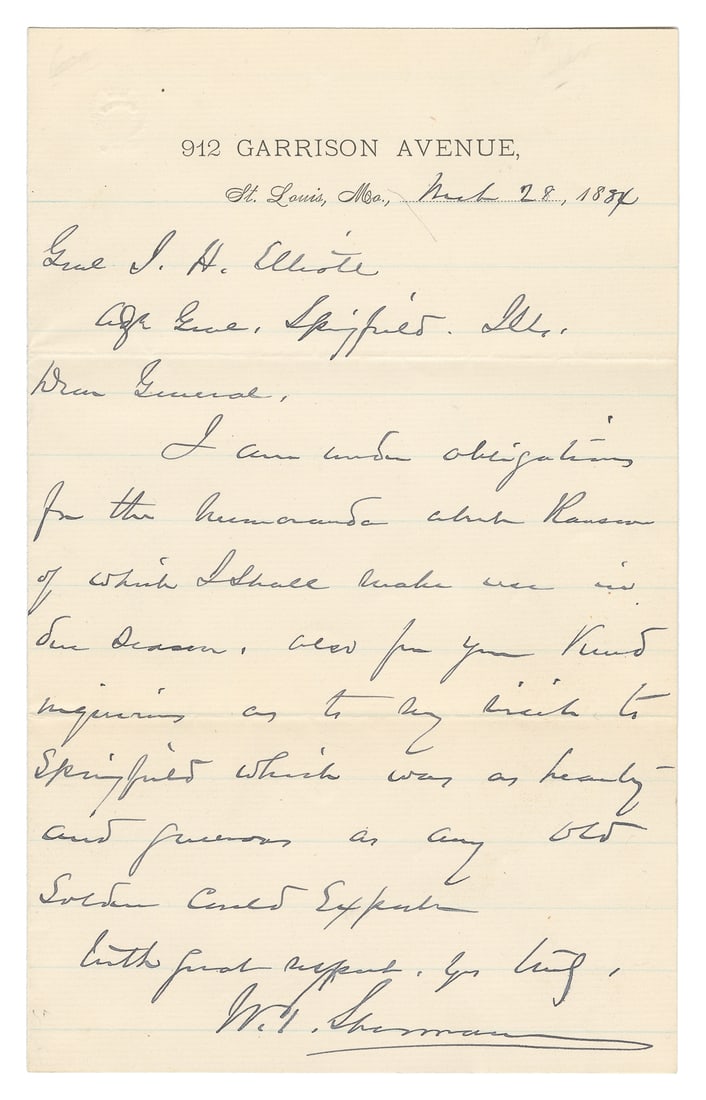 912 GARRISON AVENUE,
St. Louis, Mo., Mch 28, 1884
Genl I. H. Elliott
Adjt Genl. Springfield. Ills.
Dear General,
I am under obligations
for the memoranda about Ransom
of which I Shall make use in
due season. also for your Kind
inquiries as to my visit to
Springfield which was as hearty
and generous as any old
Soldier Could Expect
With great respect. Yrs truly,
W. T. Sherman